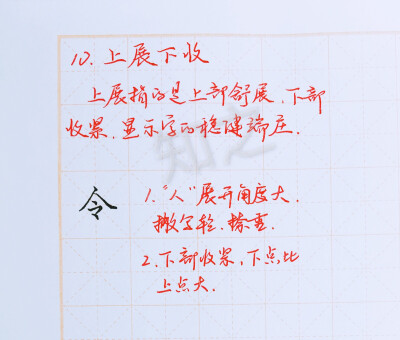 10.上展下收
上展指的是上部舒展.下部
收紧.显示字的稳健端庄.
令
1."人"展开角度大.
撇写轻.捺重.
2.下部收紧,下点比
上点大.